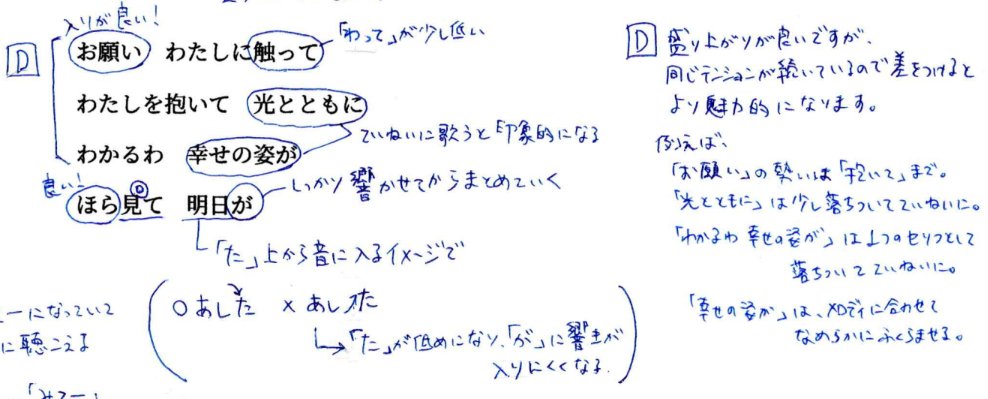 入りが良い!
D
お願い わたしに触って
「わって」が少し低い
わたしを抱いて 光とともに
ていねいに歌うと印象的になる
わかるわ 幸せの姿が
良い!
ほら見て 明日が
しっかり響かせてからまとめていく
「た」上から音に入るイメージで
○あした ×あした
「た」が低めになり、「が」に響きが
入りにくくなる.
ーになっていて
に聴こえる
「みてー」
D 盛り上がりが良いですが、
同じテンションが続いているので差をつけると
より魅力的になります。
例えば、
「お願い」の勢いは「抱いて」まで。
「光とともに」は少し落ちついてていねいに。
「わかるわ 幸せの姿が」は1つのセリフとして
落ちついてていねいに。
「幸せの姿が」は、メロディに合わせて
なめらかにふくらませる。